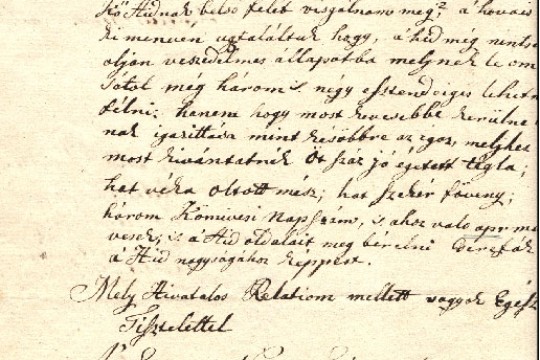 Kő Hidnak belső felét visgálnam meg; a' hovais
ki menvén ugatáltuk hogy, a' hid még nints
olyan veszedelmes állapotba melynek le om
ástol még három is négy esztendeigis lehetn
félni; hanem hogy most kevesebbe kerülne
nak igazittása mint későbbre az igaz, melyhez
most kivántatnék Öt száz jó égetett tégla;
hat véka óltott mész; hat szekér föveny;
három Kőmivesi Napszám, is ahoz valo apr
vesek; is a' Hid oldalait meg bérelni Gerefák
a' Hid nagyságához keppest.
Mely Hivatalos Relatiom mellett vagyok Egész
Tisztelettel